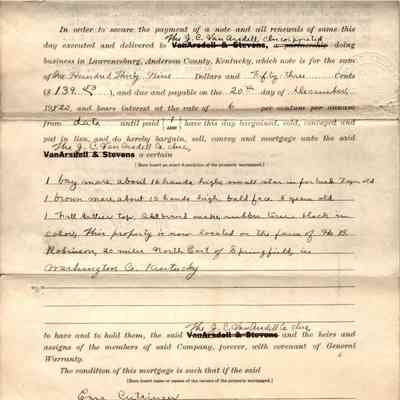 In order to secure the payment of a note and all renewals of same this
The J. C. VanArsdell Co Incorporated
day executed and delivered to VanArsdell & Stevens, a partnership doing
business in Lawrenceburg, Anderson County, Kentucky, which note is for the sum
of One Hundred Thirty Nine Dollars and Fifty Three Cents
($ 139.53 ), and due and payable on the 20th day of December,
1920, and bears interest at the rate of 6 per centum per annum
from date until paid [ I ] have this day bargained, sold, conveyed and
put in lien, and do hereby bargain, sell, convey and mortgage unto the said
The J. C. VanArsdell Co. Inc,
VanArsdell & Stevens a certain
[Here insert an exact description of the property mortgaged.]
1 bay mare about 16 hands high small star in forehead 7 yrs old
1 brown mare about 16 hands high bald face 8 years old
1 Full leather top make, rubber tire black in
color, This property is now located on the farm of
Robinson, 20 miles North East of Springfield in
Washington Co. Kentucky
The J. C. VanArsdell Co Inc,
to have and to hold them, the said VanArsdell & Stevens and the heirs and
assigns of the members of said Company, forever, with covenant of General
Warranty.
The condition of this mortgage is such that if the said
[Here insert name or names of the owners of the property mortgaged.]